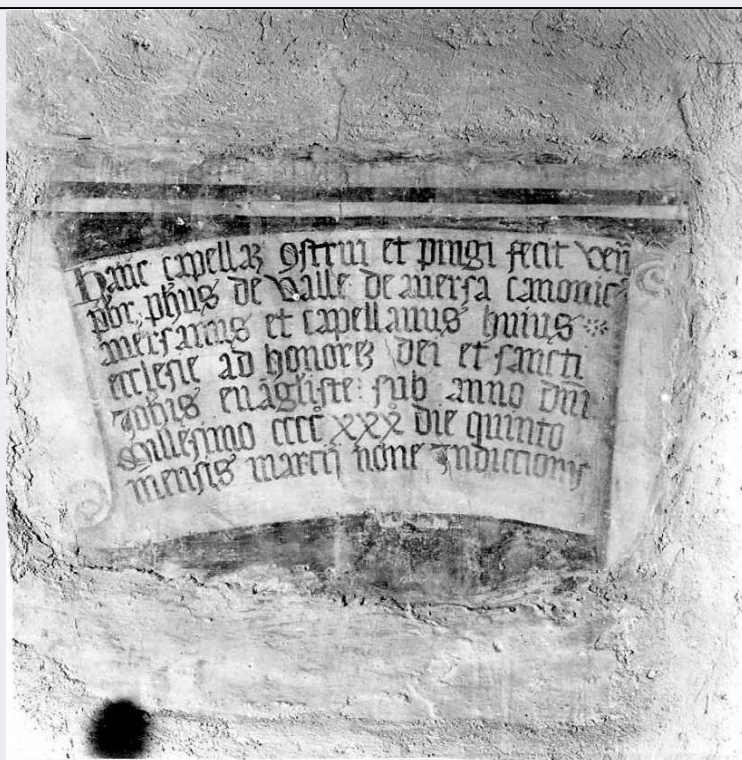 hanc capellaʒ ꝯstrui et pingi fecit veñ
pbr. phus de Valle de aversa canonicꝰ
aversanus et capellanus huius
ecclesie ad honoreʒ dei et sancti
Johis evãgliste: sub anno dñi
Millesimo cccc̊ xxx̊ die quinto
mensis marcij none Indiccionis